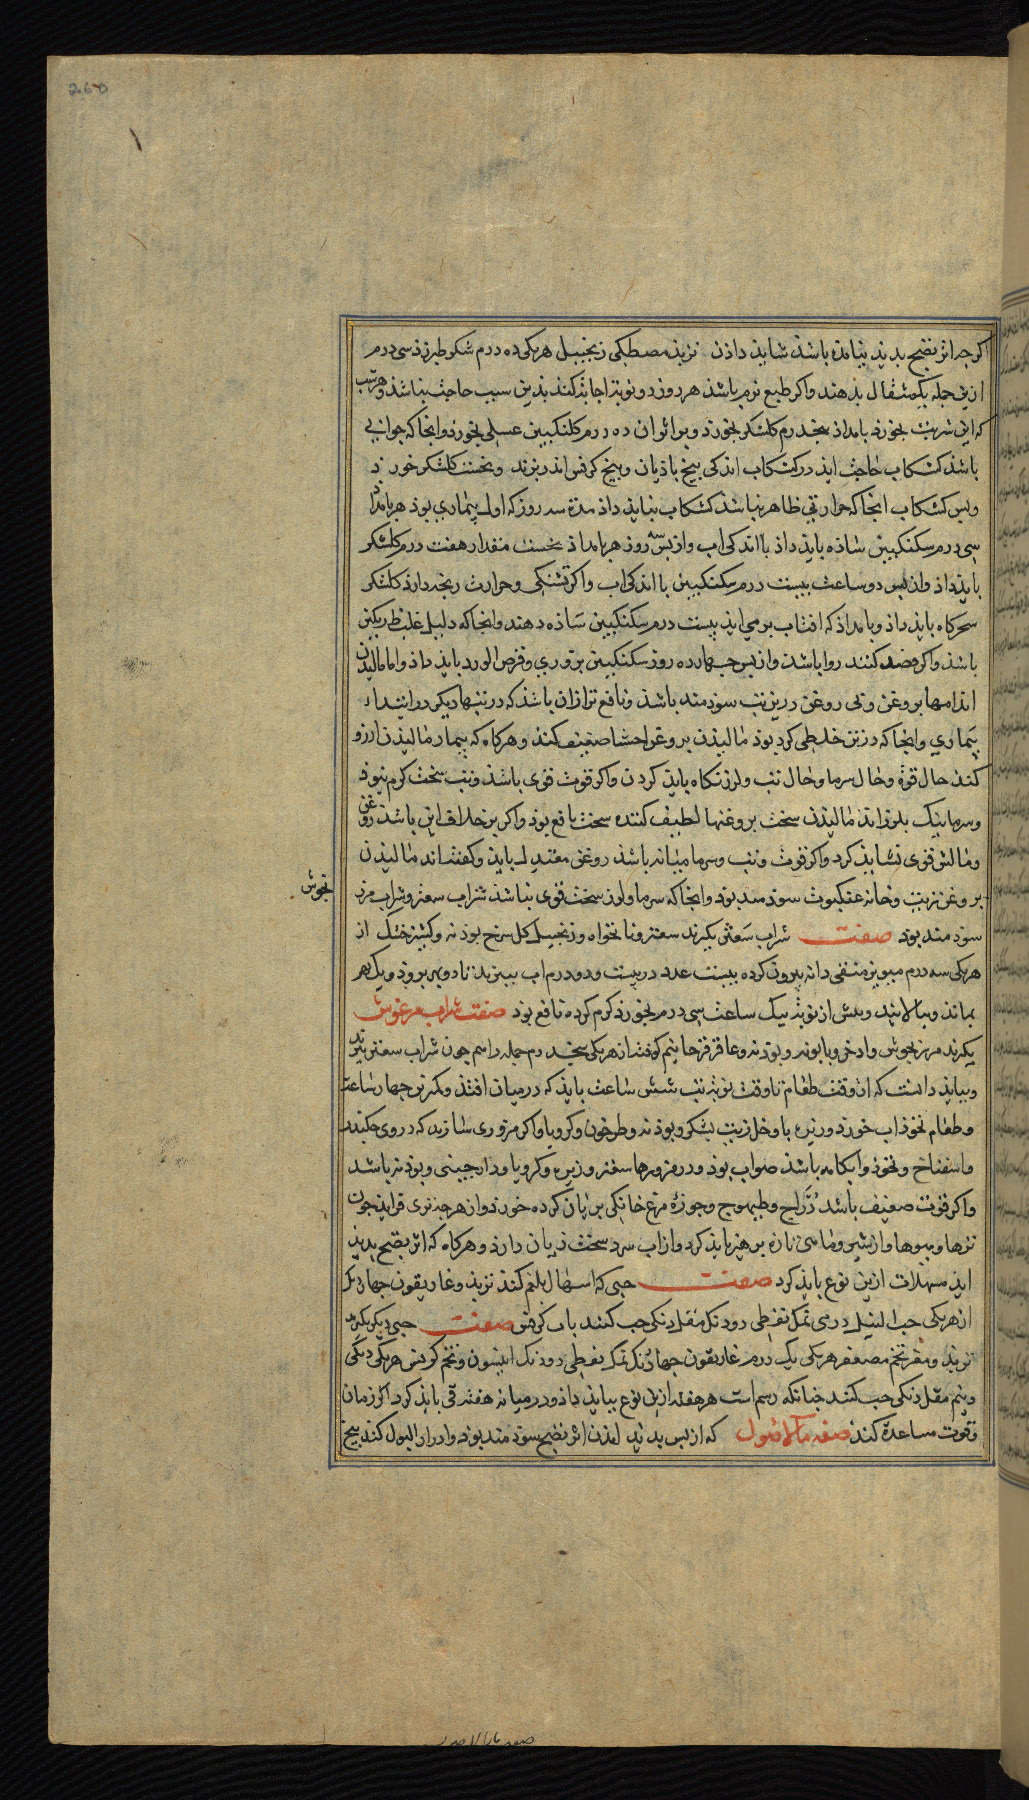 260
اکر چه اثر نضج بدید نیامده باشذ شایذ داذن تربذ مصطکی زنجبیل هریکی ده درم شکر طبرزذ سی درم
ازین جمله یکمثقال بذهند واکر طبع نرم باشذ هر روز دو نوبة اجابة کند بذین سبب حاجت نباشذ وهر شب
که این شربت بخورد بامداذ سخدرم کلشکر بخورد وبر اثر ان ده درم کلنکبین عسلی بخورد وانجا که جوانی
باشذ کشکاب حاجت ایذ در کشکاب اندکی بیخ باذیان وبیخ کرفس اندر پزند ونخست کلشکر خورد
وپس کشکاب انجا که حرارتی ظاهر نباشد کشکاب نبایذ داذ مدة سه روز که اول بیماری بوذ هر بامداد
سی درم سکنکبین ساذه بایذ داذ با اندکی اب واز پس سه روز هر بامداذ نخست مقدار هفت درم کلشکر
بایذ داذ واز پس دو ساعت بیست درم سکنکبین با اندکی اب واکر تشنکی وحرارت رنجه دارذ کلشکر
سحرکاه بایذ داذ وبامداذ که افتاب برمی ایذ بیست درم سکنکبین ساذه دهند وانجا که دلیل غلبه ظ
باشذ واکر فصد کنند روا باشد واز پس چهارده روز سکنکبین بزوری وقرص الورد بایذ داذ واما مالیذن
اندامها بروغن وبی روغن درین تب سوذمند باشذ ونافع تر ازان باشذ که در تبهاء دیکر در ابتداء
بیماری وانجا که درتن خلطی کرد بوذ مالیذن بروغن احشا ضعیف کند وهرکاه که بیمار مالیذن ارزو
کند حال قوة وحال سرما وحال تب ولرز نکاه بایذ کردن واکر قوت قوی باشذ وتب سخت کرم نبوذ
وسرما نیک بلرزاند مالیذن سخت بروغنها لطیف کننده سخت نافع بوذ واکر برخلاف این باشذ روغن
ومالش قوی نشایذ کرد واکر قوت وتب وسرما میانه باشذ روغن معتدل بایذ وکفته‌اند مالیذن
بروغن زیت وخانه عنکبوت سوذمند بوذ وانجا که سرما ولرز سخت قوی نباشذ شراب سعتر وشراب مرز
نجوش
سوذمند بوذ صفت شراب سعتر بکیرند سعتر ونانخواه وزنجبیل کل سرخ بوذنه وکشنیز خشک از
هریکی سه درم میویز منقی دانه بیرون کرده بیست عدد در بیست ودو درم اب بپزند تا دو بهر بروذ ویک بهر
بماند وبپالایند وپیش از نوبة بیک ساعت سی درم بخورد کرم کرده نافع بوذ صفت شراب مرزنجوش
بکیرند مرزنجوش واذخر وبابونه وبوذنه وعاقرقرحا نیم کوفته از هریکی سخدرم جمله را هم جون شراب سعتر بپزند
وببایذ دانست که از وقت طعام تا وقت نوبة تب شش ساعت بایذ که در میان افتذ وکمترین جهار ساعت
وطعام نخوذاب خورد وزیره با وخل زیت بشکر وبوذنه وطرخون وکرویا واکر مزوری سازند که در وی حکندر
واسفناخ ونخوذ وابکامه باشذ صواب بوذ ودر مزورها سعتر وزیره وکرویا ودارجینی وبوذنه باشد
واکر قوت ضعیف باشد دُرّاج وطیهوج وجوژه مرغ خانکی بریان کرده خورذ واز هرجه تری فزاید جون
ترها ومیوها واز شیر وماهی تازه پرهیز بایذ کرد واز اب سرد سخت زیان دارذ وهرکاه که اثر نضج بدید
ایذ مسهلات ازین نوع بایذ کرد صفت حبی که اسهال بلغم کند تربذ وغاریقون جهار دنک
از هریکی حب النیل درمی نمک نفطی دودنک مقل دنکی حب کنند باب کرفس صفت حبی دیکر بکیرند
تربذ ومغز تخم معصفر هریکی یک درم غاریقون جهاردنک نمک نفطی دودنک انیسون وتخم کرفس هریکی دنکی
ونیم مقل دنکی حب کنند جنانکه رسم است هر هفته ازین نوع ببایذ داذ ودر میانه هفته قی بایذ کرد اکر زمان
وقوت مساعدة کند صفه ماء الاصول که از پس بدید امذن اثر نضج سوذمند بوذ وادرار البول کند بیخ
صفه ماء الاصول